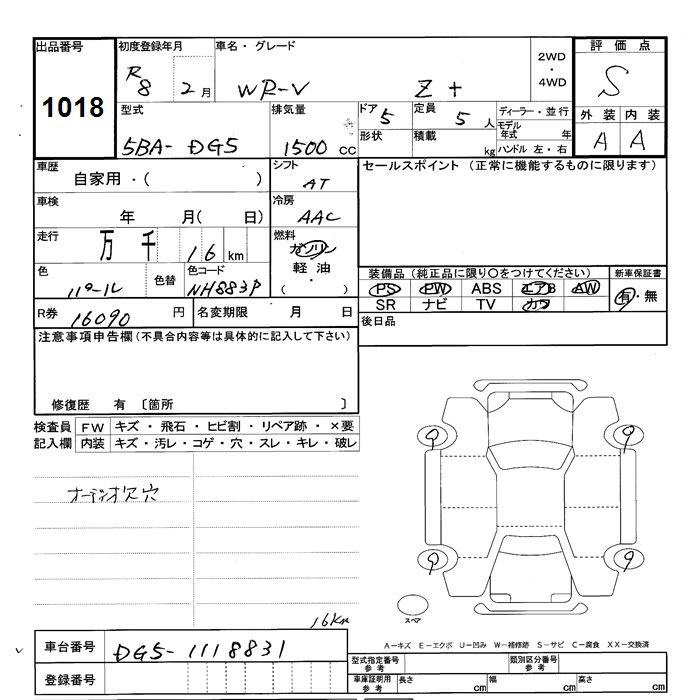 出品番号 初度登録年月 車名・グレード 2WD・4WD 評価点
1018 R8 2月 WR-V Z+ S
型式 排気量 ドア 5 定員 5人 ディーラー・並行 外装 内装
5BA-DG5 1500cc 形状 積載 kg モデル年式 年 A A
ハンドル 左・右
車歴 自家用・( ) シフト AT セールスポイント (正常に機能するものに限ります)
車検 年 月( 日) 冷房 AAC
走行 万 千 16 km 燃料 ガソリン 軽油 ( ・ )
色 パール 色替 色コード NH883P
装備品 (純正品に限り○をつけてください) 新車保証書
PS PW ABS エアB AW 有・無
SR ナビ TV カワ
R券 16090 円 名変期限 月 日 後日品
注意事項申告欄 (不具合内容等は具体的に記入して下さい)
修復歴 有 〔箇所 〕
検査員 FW キズ・飛石・ヒビ割・リペア跡・×要
記入欄 内装 キズ・汚レ・コゲ・穴・スレ・キレ・破レ
オーディオ欠穴
9 9
9 9
スペア
16km
A-キズ E-エクボ U-凹み W-補修跡 S-サビ C-腐食 XX-交換済
車台番号 DG5-1118831
型式指定番号 参考 類別区分番号 参考
登録番号 車庫証明用 参考 長さ cm 幅 cm 高さ cm